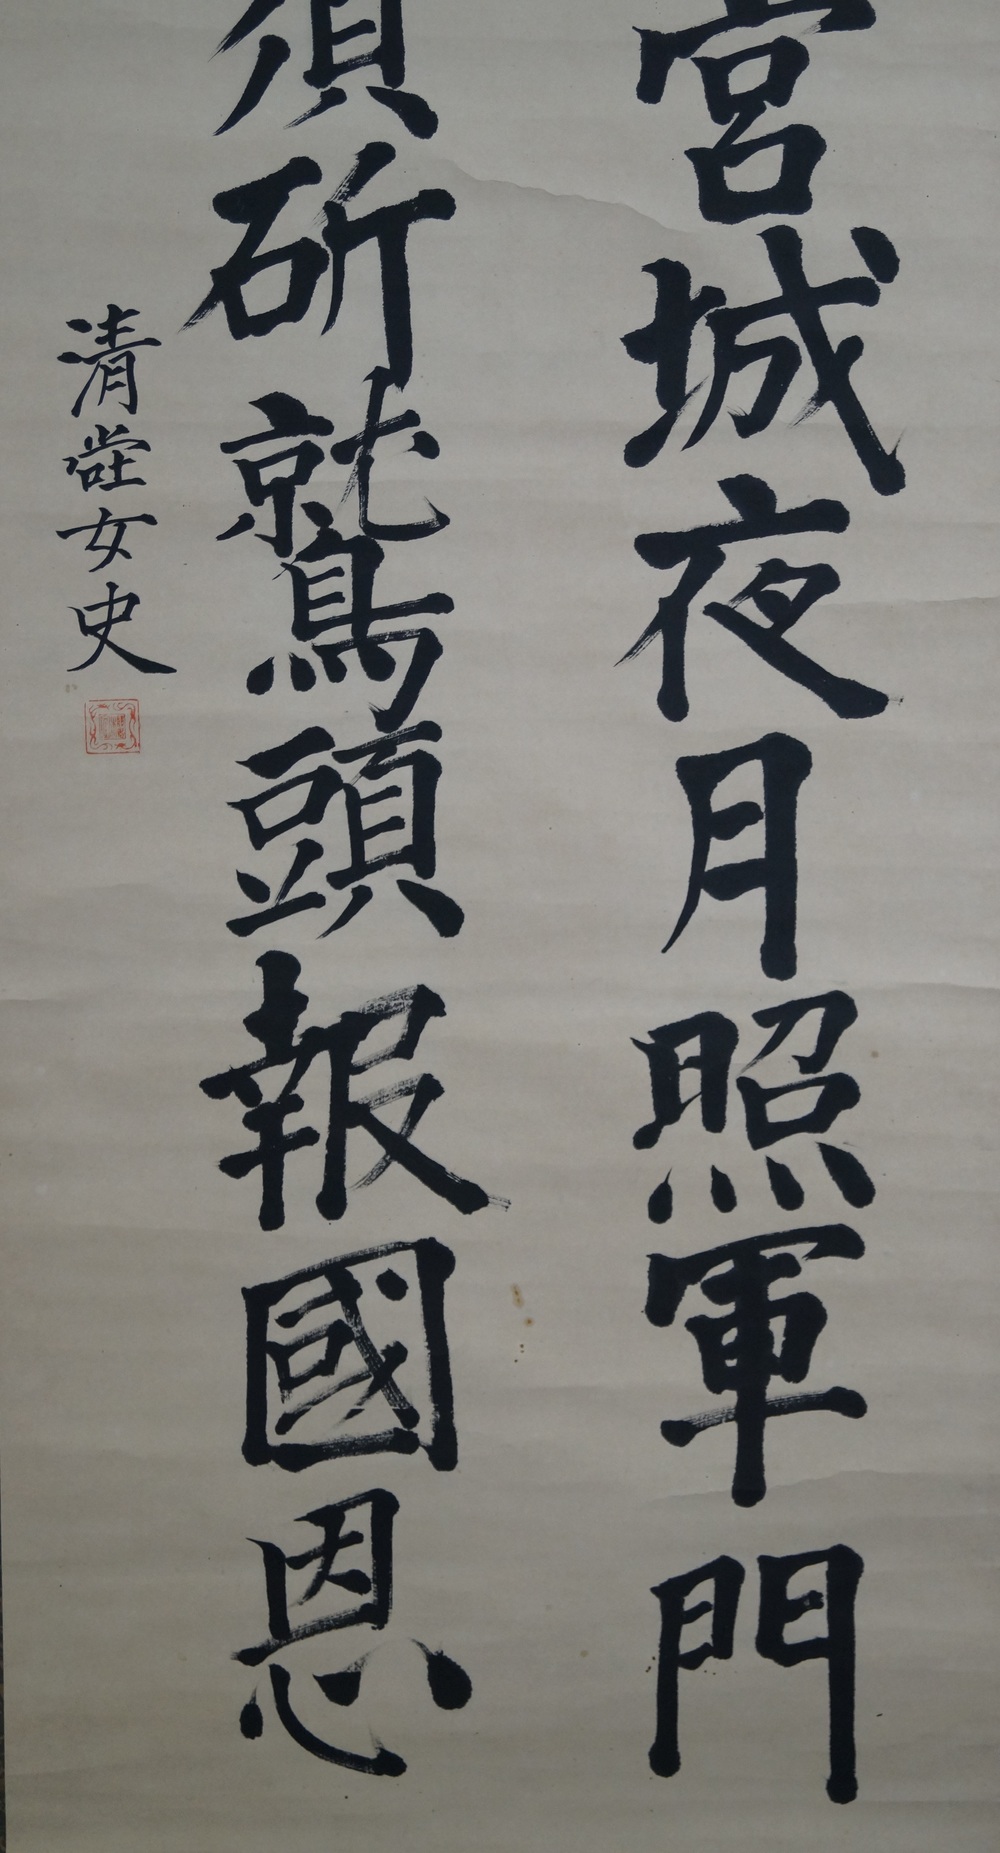 宮城夜月照軍門
須斫鷲頭報國恩
清堂女史